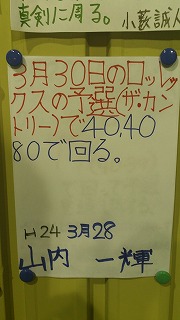 真剣に周る。
小薮誠人
3月30日のロッレッ
クスの予選(ザ・カン
トリー)で40.40
80で回る。
H24 3月28
山内 一輝